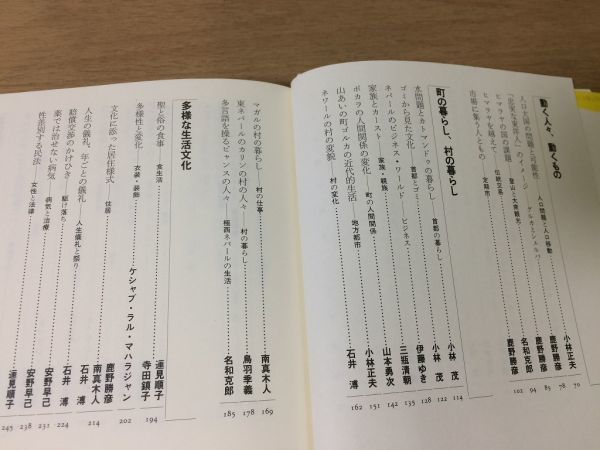 動く人々、動くもの
人口大国の問題と可能性 人口問題と人口移動 小林正夫 70
「忠実な東洋人」のイメージ グルカとシェルパ 鹿野勝彦 78
ヒマラヤの観光の課題 登山と大衆観光 鹿野勝彦 85
ヒマラヤを越えて 伝統交易 名和克郎 94
市場に集う人ともの 定期市 鹿野勝彦 102
町の暮らし、村の暮らし
水問題とカトマンドゥの暮らし 首都の暮らし 小林 茂 114
ゴミから見た文化 首都とゴミ 小林 茂 122
ネパールのビジネス・ワールド ビジネス 伊藤ゆき 128
家族とカースト 家族・親族 三瓶清朝 135
ポカラの人間関係の変化 町の人間関係 山本勇次 142
山あいの町ゴルカの近代的生活 地方都市 小林正夫 151
ネワールの村の変貌 村の変化 石井 溥 162
マガルの村の暮らし 村の仕事 南真木人 169
東ネパールのカリンの村の人々 村の暮らし 鳥羽季義 178
多言語を操るビャンスの人々 極西ネパールの生活 名和克郎 185
多様な生活文化
聖と俗の食事 食生活 蓮見順子 194
多様性と変化 衣装・装飾 寺田鎮子
文化に添った居住様式 住居 ケシャブ・ラル・マハラジャン 202
人生の儀礼、年ごとの儀礼 人生儀礼と祭り 鹿野勝彦 南真木人 214
賠償交渉のかけひき 駆け落ち 石井 溥 224
薬では治せない病気 病気と治療 安野早己 231
性差別する民法 女性と法律 安野早己 238
蓮見順子 245